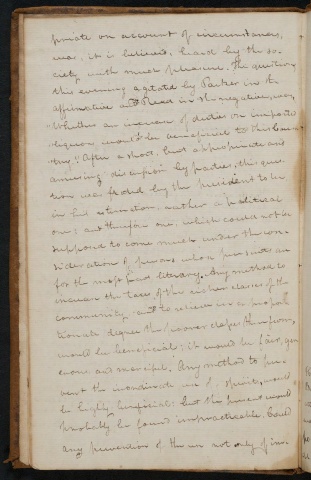 priate on account of circumstances,
was, it is believed, heard by the so-
ciety with much pleasure. The question
this evening agitated by Parker in the
affirmative and Reed in the negative, was,
"Whether an increase of duties on imported
liquors would be beneficial to this coun-
try." After a short, but appropriate and
amusing discussion by parties, the ques-
tion was stated by the president to be
in his estimation, rather a political
one; and therefore one, which could not be
supposed to come much under the con-
sideration of persons whose pursuits are
for the most part literary. Any method to
increase the taxes of the richer classes of the
community and to relieve in a propor-
tionate degree the poorer classes therefrom,
would be beneficial; it would be fair, gen-
erous and merciful. Any method to pre-
vent the inordinate use of spirits, would
be highly beneficial: but the present would
probably be found impracticable. Could
any prevention of the use not only of im-